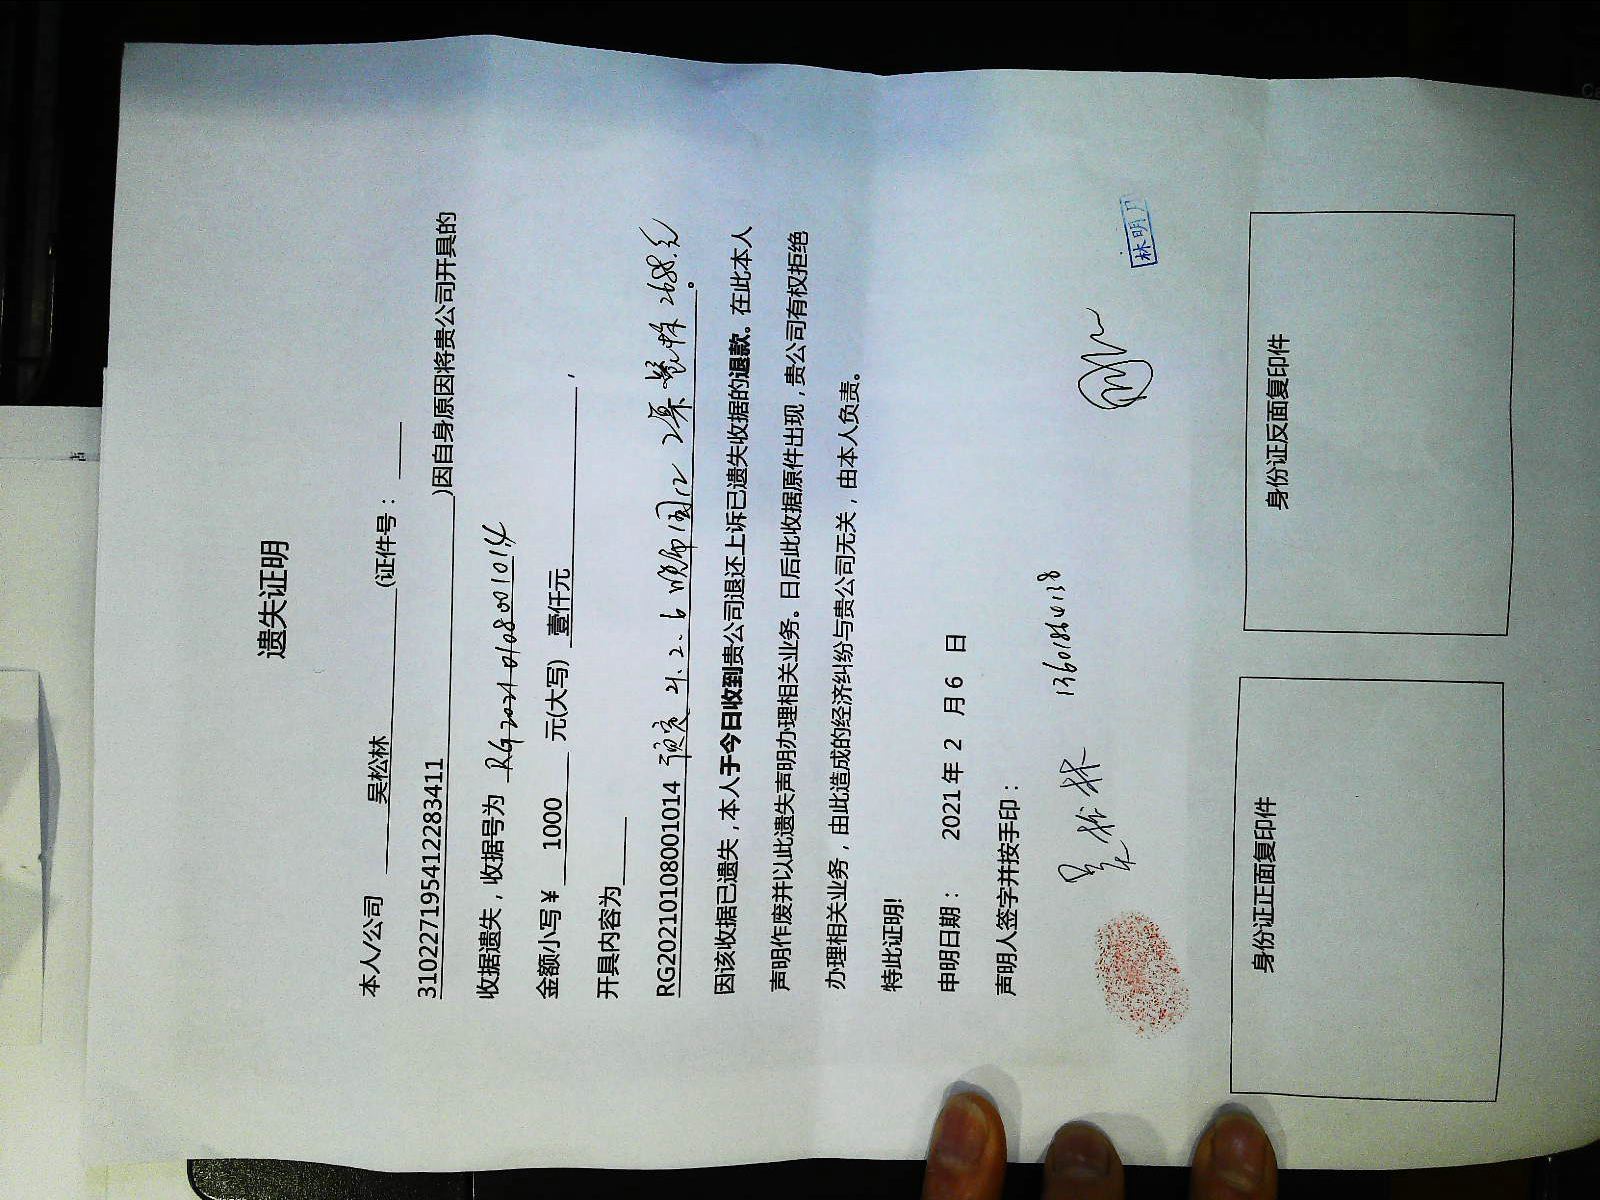 遗失证明
本人/公司 吴松林 (证件号：
310227195412283411 )因自身原因将贵公司开具的
收据遗失，收据号为 RG20210108001014
金额小写￥ 1000 元(大写) 壹仟元 ，
开具内容为
RG20210108001014 预定 21.2.6 晚 12 2桌 2688.元 。
因该收据已遗失，本人于今日收到贵公司退还上诉已遗失收据的退款。在此本人
声明作废并以此遗失声明办理相关业务。日后此收据原件出现，贵公司有权拒绝
办理相关业务，由此造成的经济纠纷与贵公司无关，由本人负责。
特此证明!
申明日期： 2021 年 2 月 6 日
声明人签字并按手印：
吴松林 13601864138
林明户
身份证正面复印件
身份证反面复印件